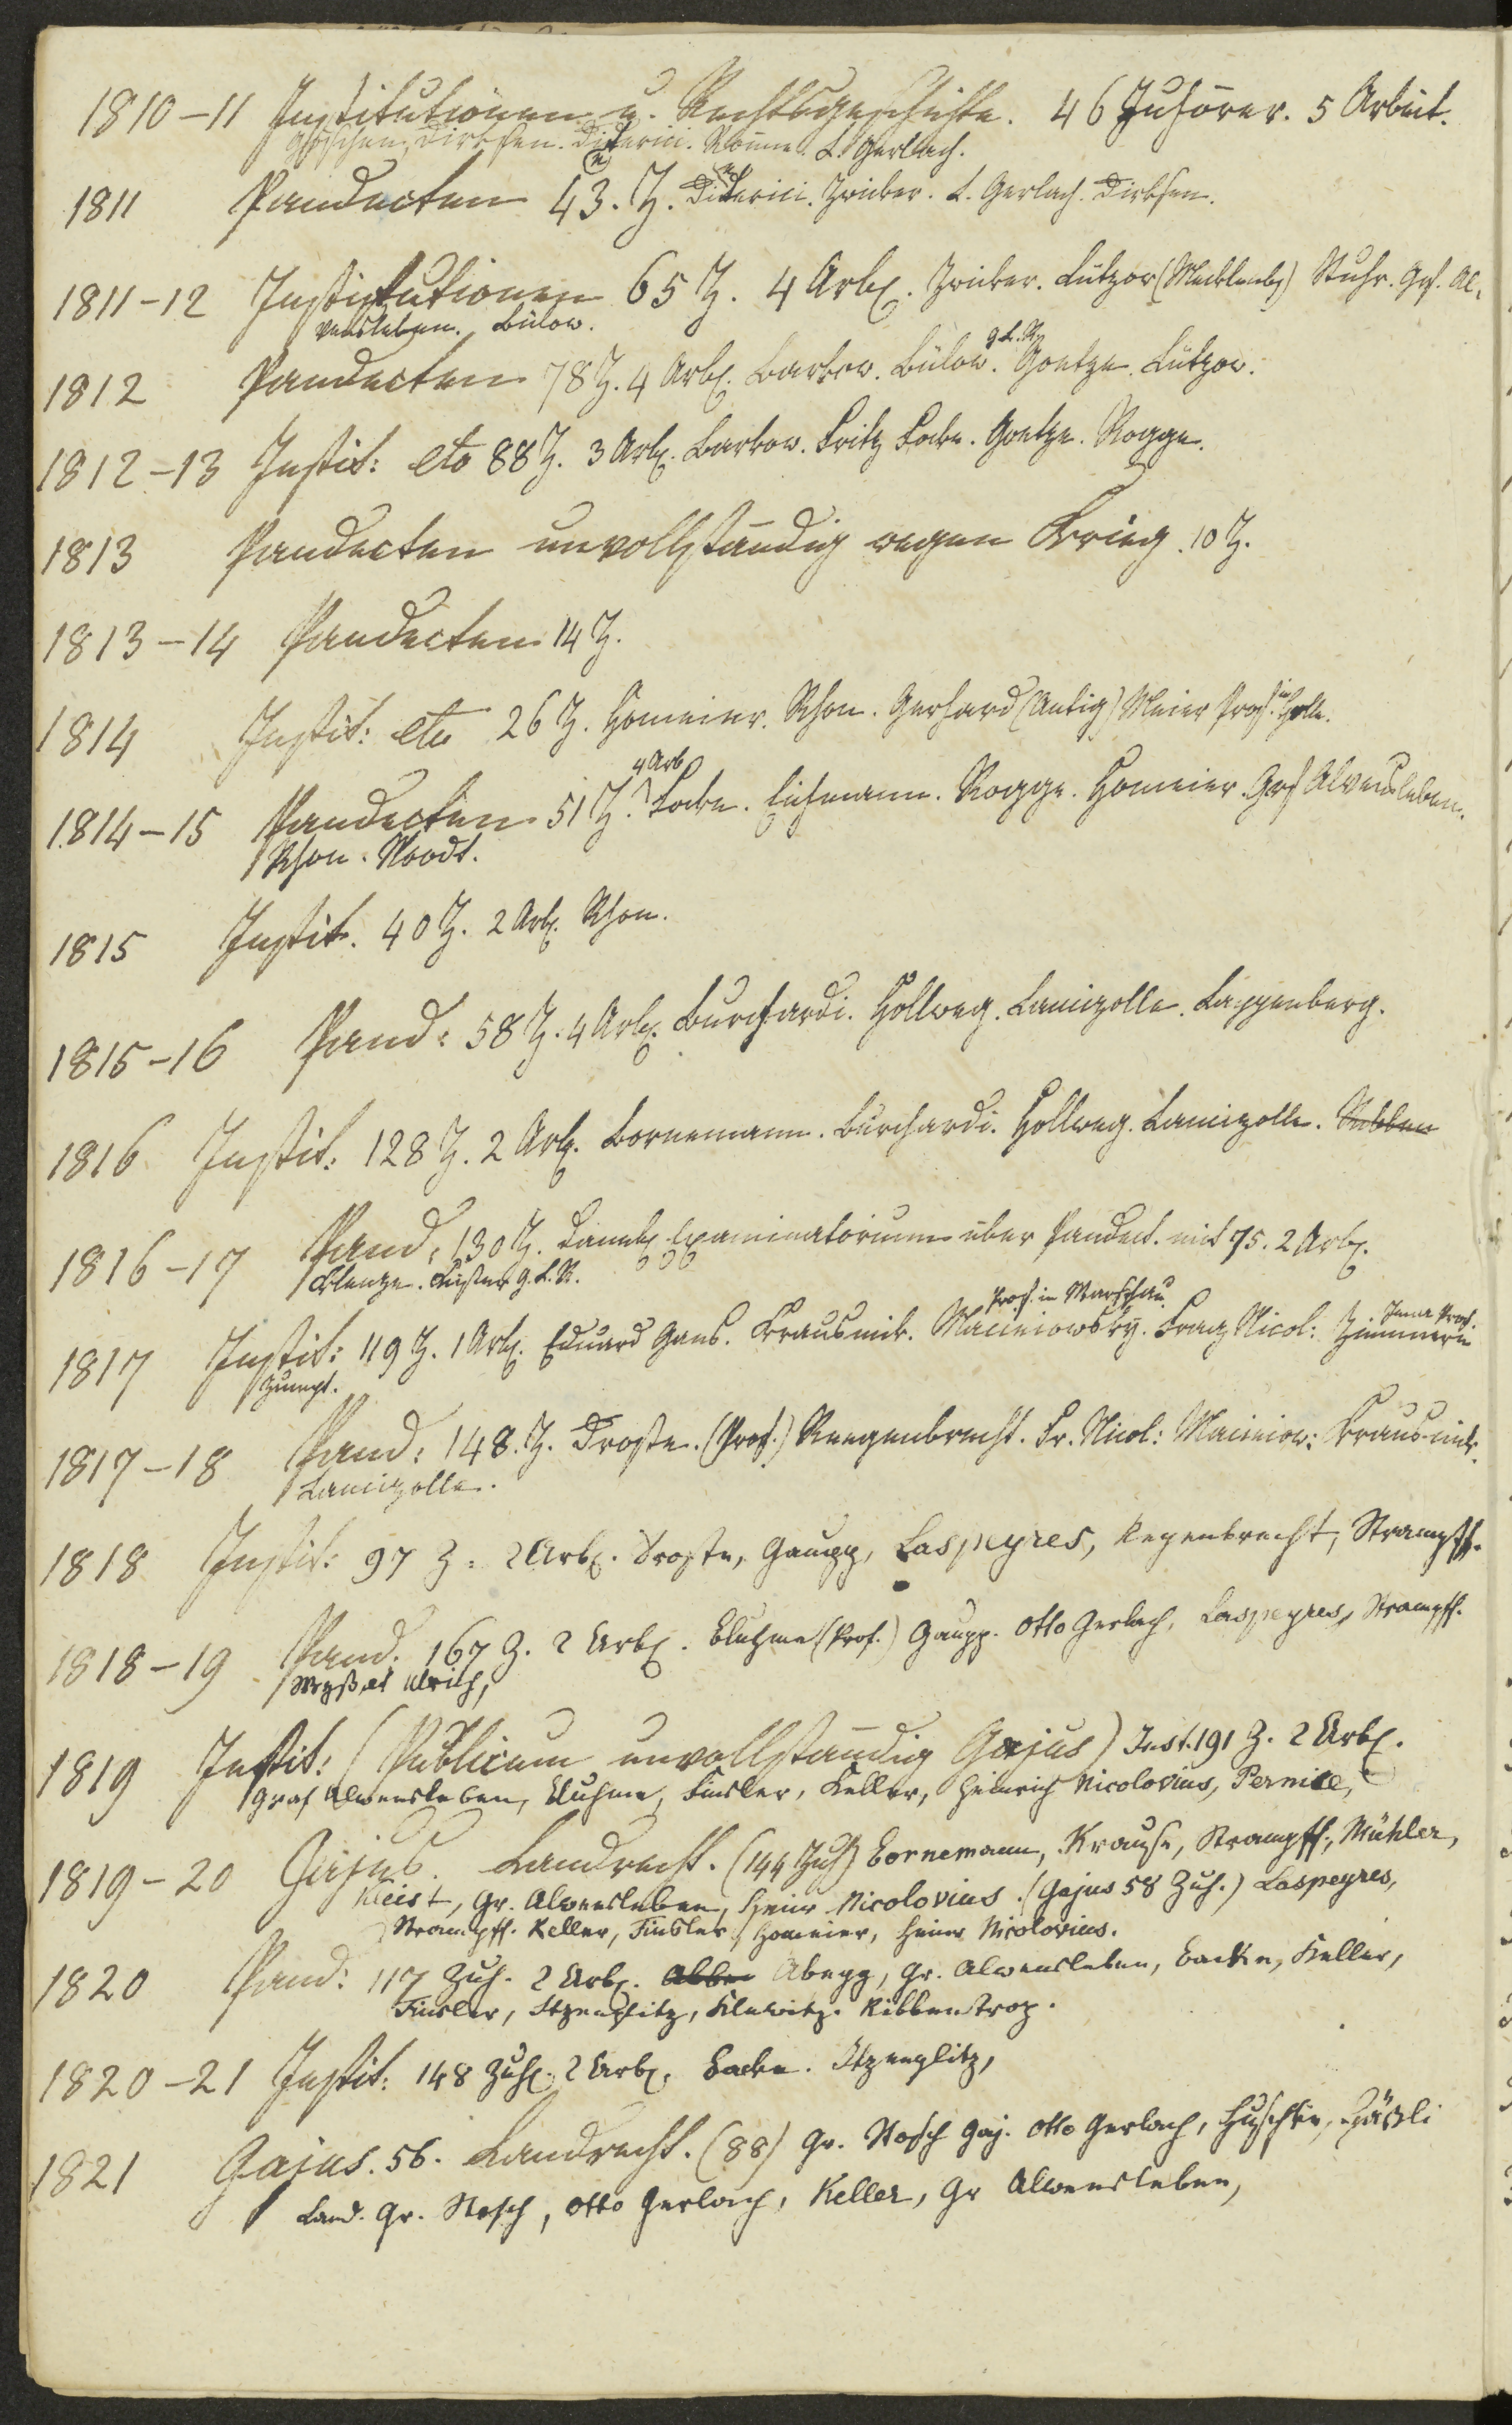 1810–11 Institutionen u. Rechtsgeschichte. 46 Zuhörer. 5 Arbeit.
Göschen, Dirksen. Dieterici. L. Gerlach.
1811 Pandecten 43. Z. Dieterici. L. Gerlach. Dirksen.
1811–12 Institutionen 65 Z. 4 Arb. Lützow (Mecklenb) Stuhr. Grf. Al-
vensleben. Bülow.
1812 Pandecten 78 Z. 4 Arb. Barkow. Bülow. Goetze. Lützow.
1812–13 Instit: etc 88 Z. 3 Arb. Barkow. Fritz Focke. Goetze. Rogge.
1813 Pandecten unvollständig wegen Krieg. 10 Z.
1813–14 Pandecten 14 Z.
1814 Instit: etc 26 Z. Homeier. Rhon. Gerhard (Antiq) Meier Prof. in Halle.
4 Arb
1814–15 Pandecten 51 Z. Focke. Eichmann. Rogge. Homeier. Grf Alvensleben.
Rhon. Noodt.
1815 Instit. 40 Z. 2 Arb. Rhon.
1815–16 Pand: 58 Z. 4 Arb. Burchardi. Hollweg. Lancizolle. Lappenberg.
1816 Instit: 128 Z. 2 Arb. Bornemann. Burchardi. Hollweg. Lancizolle.
1816–17 Pand: 130 Z. Daneb. Examinatorium über Pandect. mit 75. 2 Arb.
Klenze.
Prof. in Warschau Jena Prof.
1817 Instit: 119 Z. 1 Arb. Eduard Gans. Krausnick. Macieiowsky. Franz Nicol: Zimmern
Zumpt.
1817–18 Pand: 148. Z. Droste. (Prof.) Reegenbrecht. Fr. Nicol: Macieiow: Krausnick.
Lancizolle.
1818 Instit: 97 Z. 2 Arb. Droste, Gaupp, Laspeyres, Regenbrecht, Strampff.
1818–19 Pand. 167 Z. 2 Arb. Bluhme (Prof.) Gaupp. Otto Gerlach, Laspeyres, Strampff.
Ulrich,
1819 Instit: (Publicum unvollständig Gajus) Inst. 191 Z. 2 Arb.
Graf Alvensleben, Bluhme, Finsler, Keller, Heinrich Nicolovius, Pernice,
1819–20 Gajus. Landrecht. (144 Zuh) Bornemann, Krause, Strampff, Mühler,
Kleist, Gr. Alvensleben, Heinr Nicolovius. (Gajus 58 Zuh.) Laspeyres,
Strampff. Keller, Finsler, Homeier, Heinr Nicolovius.
1820 Pand: 117 Zuh. 2 Arb. Abegg, Gr. Alvensleben, Backe, Keller,
Finsler, Itzenplitz, Klewitz. Ribbentrop.
1820–21 Instit: 148 Zuh. 2 Arb. Backe. Itzenplitz,
1821 Gajus. 56. Landrecht. (88) Gr. Stosch Gaj. Otto Gerlach, Huschke,
Land. Gr. Stosch, Otto Gerlach, Keller, Gr Alvensleben,